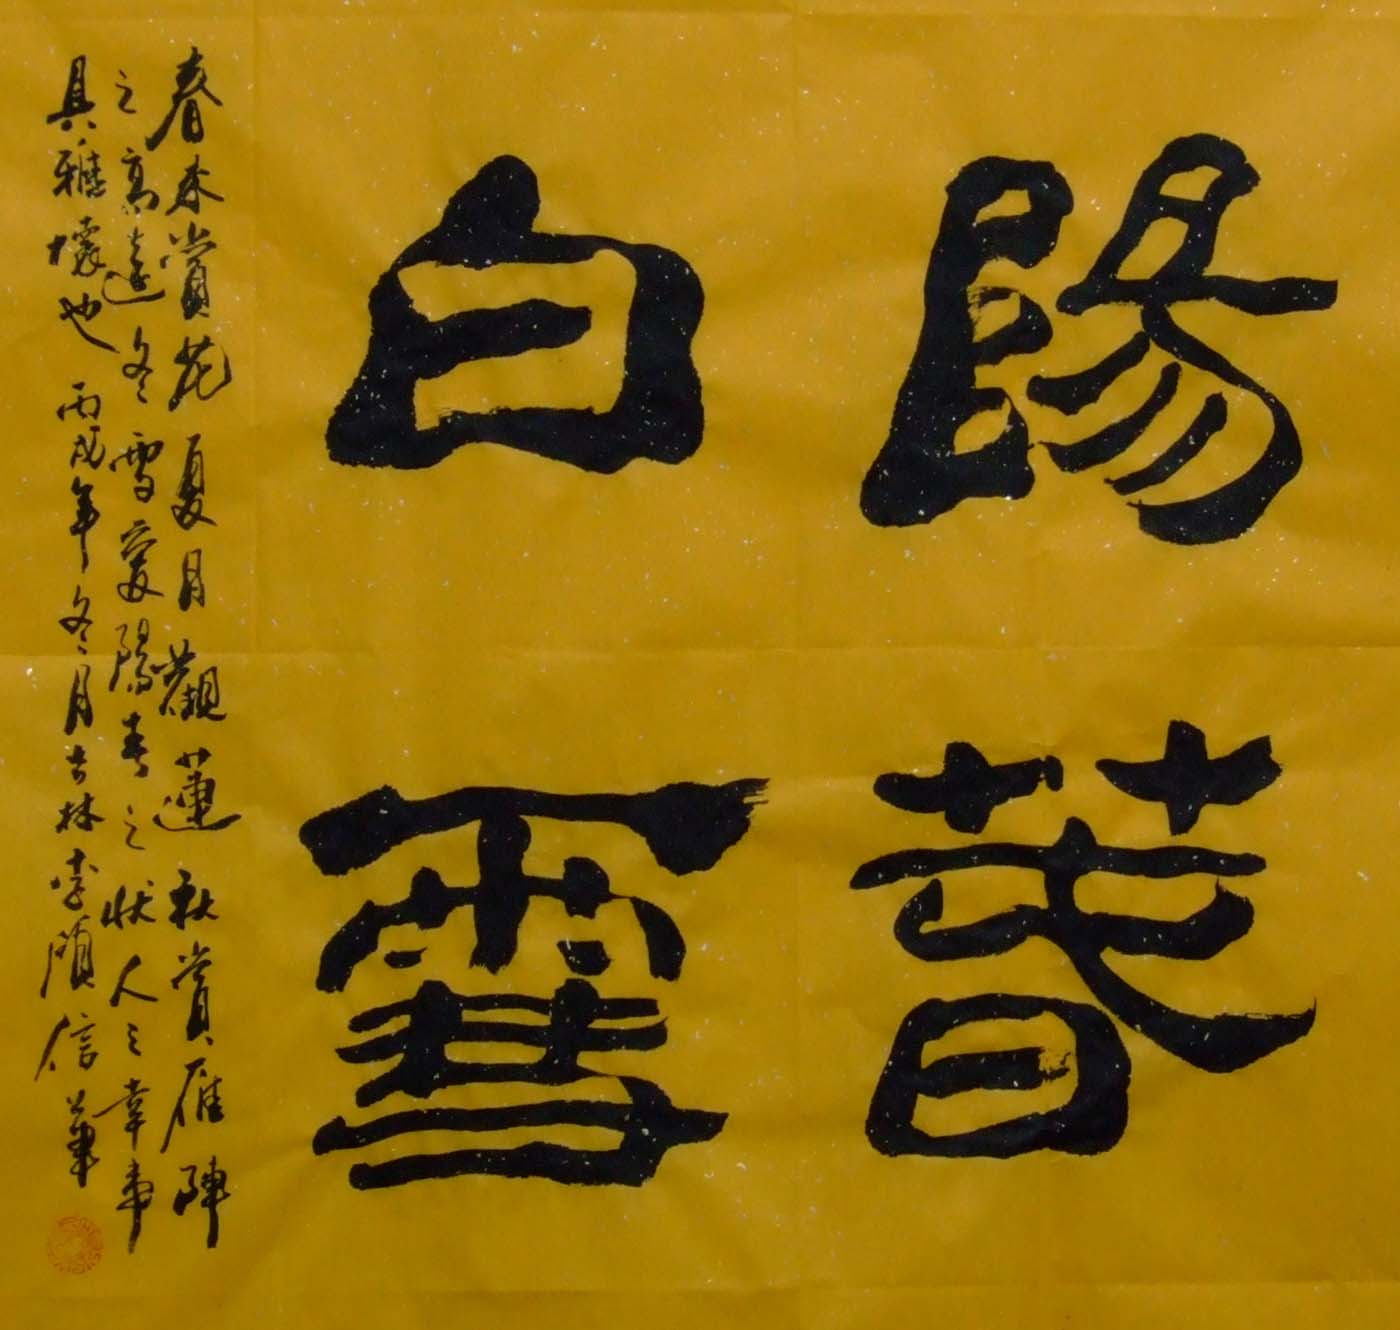 陽春
白雪
春来賞花夏月觀蓮秋賞雁陣
之高遠冬雪宴陽春之状人之幸事
具雅懷也丙戌年冬月吉林李順信筆